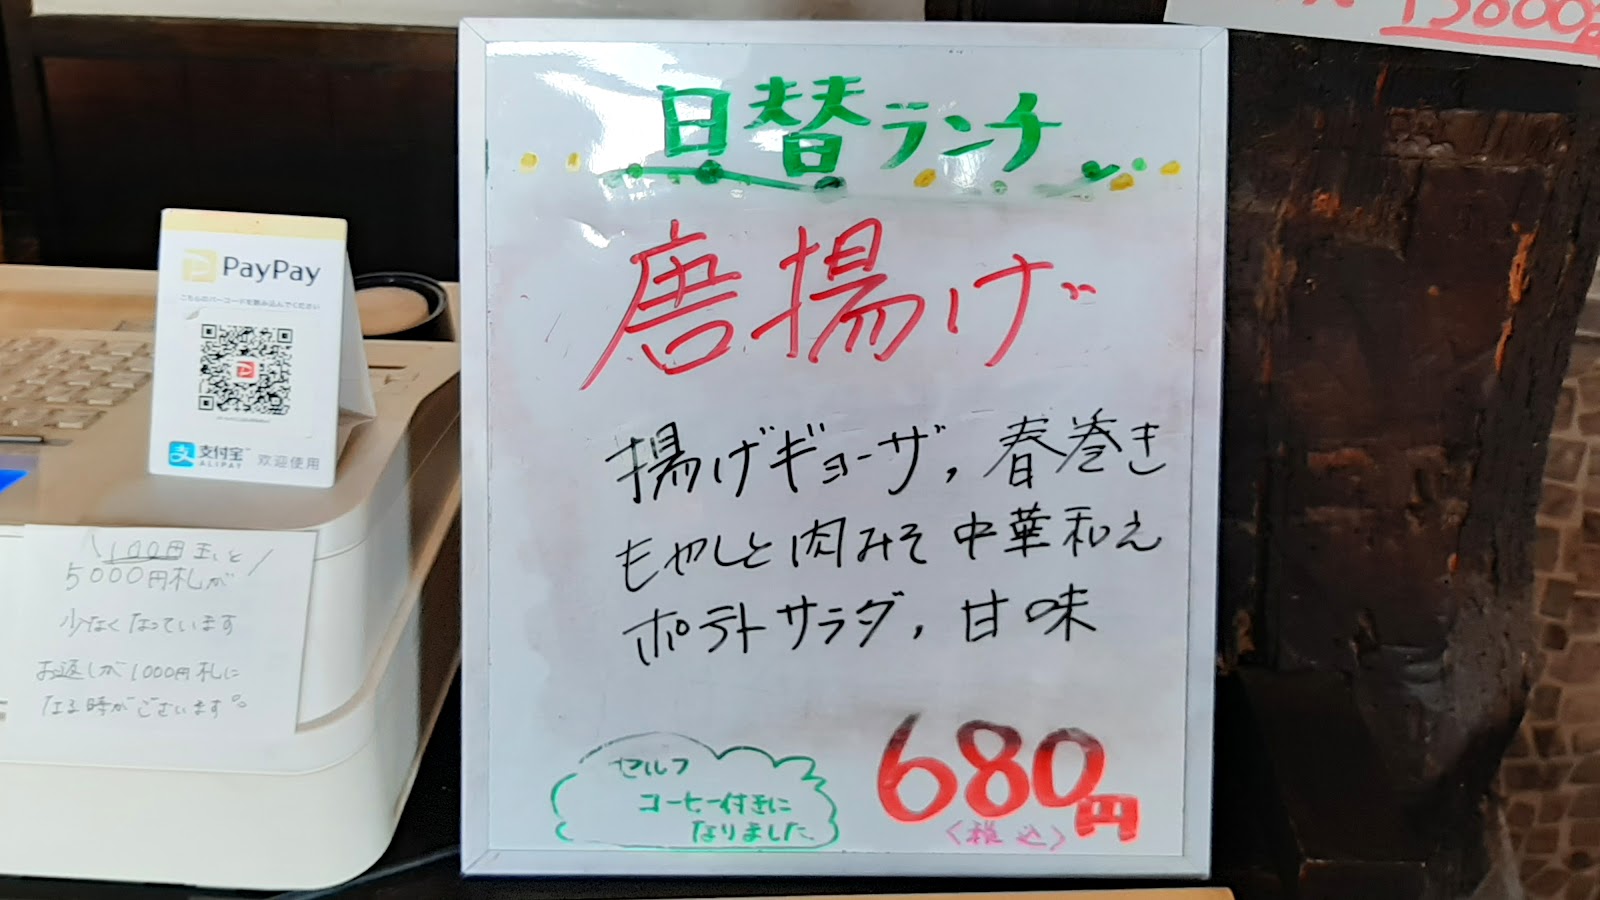 日替ランチ
唐揚げ
揚げギョーザ,春巻き
もやしと肉みそ中華和え
ポテトサラダ,甘味
セルフ
コーヒー付きに
なりました
680円
〈税込〉
PayPay
こちらのバーコードを読み込んでください
支付宝
ALIPAY
欢迎使用
\100円玉と/
5000円札が
少なくなっています
お返しが1000円札に
なる時がございます。